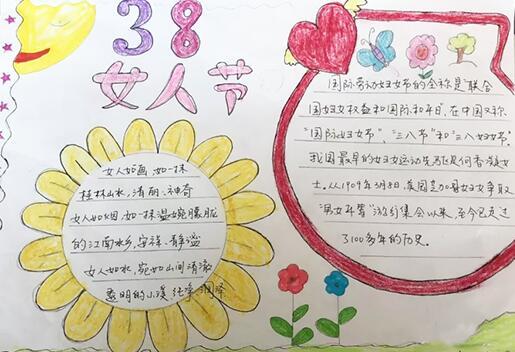 38
女人节
女人如画,如一抹
桂林山水,清丽、神奇
女人如烟,如一抹温婉朦胧
的江南水乡,安祥、静谧
女人如水,宛如山间清澈
透明的小溪 纯净 润泽
国际劳动妇女节的全称是"联合
国妇女权益和国际和平日",在中国又称
"国际妇女节","三八节"和"三八妇女节".
我国最早的妇女运动先驱是何香凝女
士,从1909年3月8日,美国芝加哥妇女争取
"男女平等"游行集会以来,至今已走过
了100多年的历史。